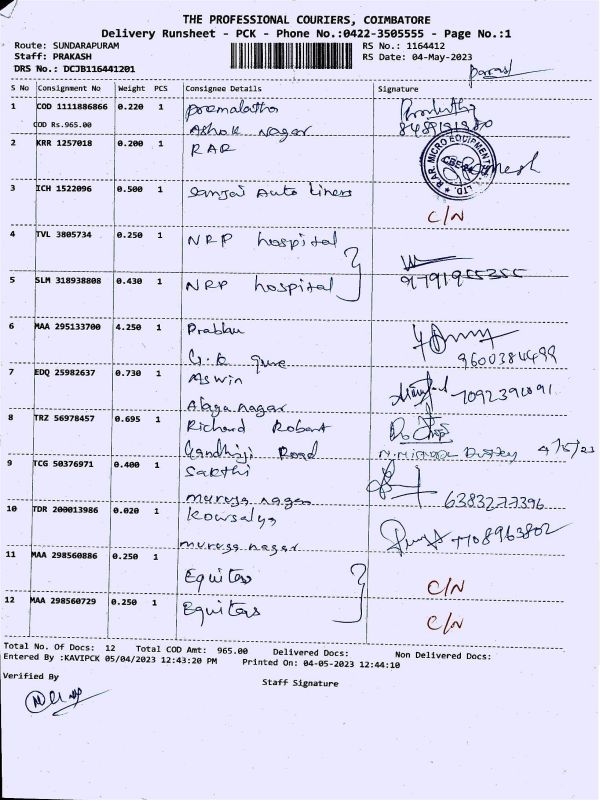 THE PROFESSIONAL COURIERS, COIMBATORE
Delivery Runsheet - PCK - Phone No.:0422-3505555 - Page No.:1
Route: SUNDARAPURAM RS No.: 1164412
Staff: PRAKASH RS Date: 04-May-2023
DRS No.: DCJB116441201
S No Consignment No Weight PCS Consignee Details Signature
1 COD 1111886866 0.220 1 premalatha
COD Rs.965.00 Ashok Nagar
2 KRR 1257018 0.200 1 RAR
R.A.R. MICRO EQUIPMENT LTD.
3 ICH 1522096 0.500 1 Sanjai Auto Liners C/N
4 TVL 3805734 0.250 1 NRP hospital
5 SLM 318938808 0.430 1 NRP hospital 9791955355
6 MAA 295133700 4.250 1 Prabhu
9600384499
7 EDQ 25982637 0.730 1 Aswin
Alaga nagar
8 TRZ 56978457 0.695 1 Richard Robert
Gandhiji Road 4/5/23
9 TCG 50376971 0.400 1 Sakthi
muruga nagar 6383277396
10 TDR 200013986 0.020 1 Kowsalya
muruga nagar 7708963802
11 MAA 298560886 0.250 1 Equitas C/N
12 MAA 298560729 0.250 1 Equitas C/N
Total No. Of Docs: 12 Total COD Amt: 965.00 Delivered Docs: Non Delivered Docs:
Entered By :KAVIPCK 05/04/2023 12:43:20 PM Printed On: 04-05-2023 12:44:10
Verified By
Staff Signature